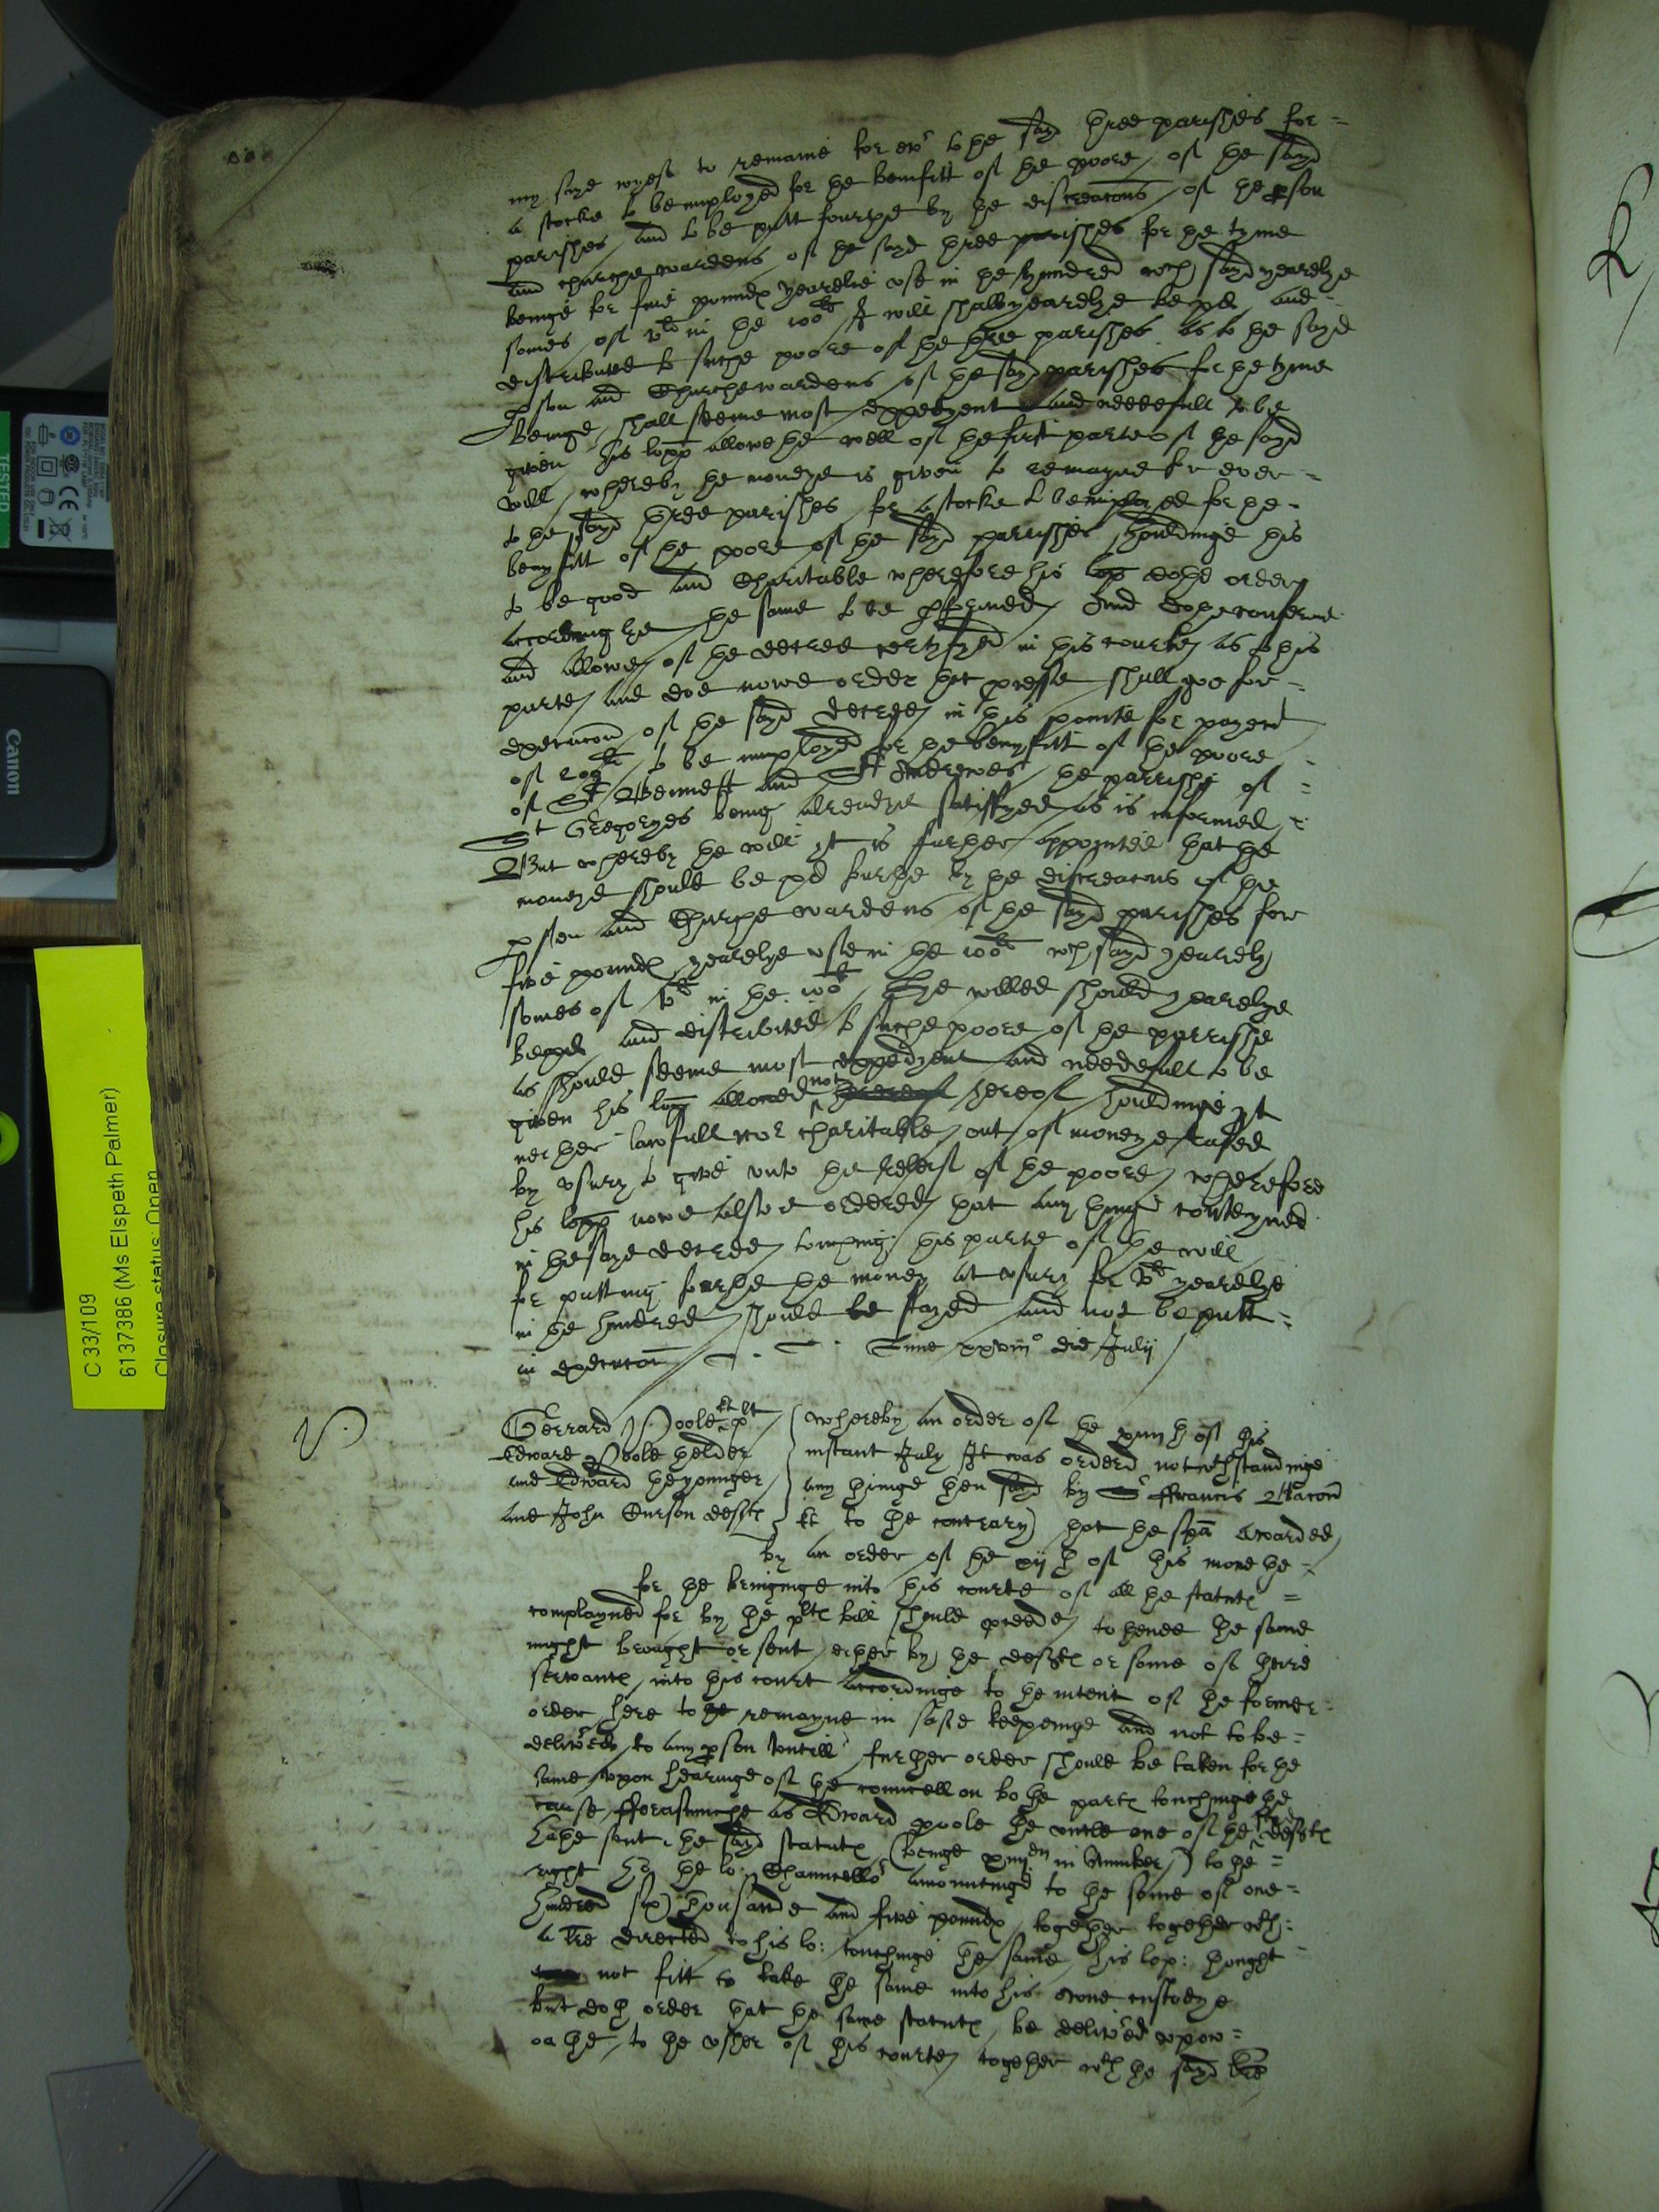 my sayd request to remaine for ev^r to the sayd three parishes for =
a stocke to be imployed for the benifitt of the poore of the sayd
parishes and to be putt fourthe by the discreacons of the pson
and churche wardens of the sayd three parishes for the tyme
beinge for five poundes yearelie use in the hundred w^ch sayd yearelye
somes of v^li in the 100^li I will shalbe yearelye be pd and =
distributed to suche poore of the three parishes as to the sayd
pson and Churchewardens of the sayd parishes for the tyme
beinge shall seeme most expedyent and needefull to be
given his lopp alloweth well of the first parte of the sayd
will whereby the moneye is given to remayne for ever =
to the sayd three parishes for a stocke to be imployed for the =
benyfitt of the poore of the sayd parrishes houldinge this
to be good and Charitable wherefore his lop dothe order
accordinglye the same to be pformed And dothe conferme
and allowe of the decree certifyed in this courte as to this
parte and doe nowe order that presse shall goe for =
execucon of the sayd decree in this pointe for payem^t
of 200^li to be imployed for the benyfitt of the poore =
of S^t Bennett and S^t Andrewes the parrishe of =
S^t Gregoryes being alreadye satisfyed as is informed =
But whereby the will yt is further appointed that the
moneye should be pd furthe by the discreacons of the
pson and Churche wardens of the sayd parishes for
five poundes yearelye use in the 100^li w^ch sayd yearely
somes of v^li in the 100^li hee willed should yearelye
be payd and distributed to suche poore of the parrishe
as should seeme most expedyent and needefull to be
given his lopp allowed not thereof hereof houldinge yt
nether lawfull nor charitable out of moneye raised
by usury to give unto the releif of the poore wherefore
his lopp nowe alsoe ordered that any thinge conteyned
in the sayd decree touching this parte of the will
for putting fourthe the money at usury for v^li yearelye
in the hundred should be stayed and not be putt =
in execucon
June xxviii^o die July
Gerrard Poole kt plt
Edward Poole thelder
and Edward the younger
and John Curson defts
Whereby an order of the xiiijth of this
instant July It was orderd notw^thstandinge
any thinge then sayd by S^r ffrancis Bacon
kt to the contrary that the spa awarded
by an order of the xijth of this monethe =
for the bringinge into this courte of all the statutes =
complayned for by the plts bill should proceede to thende the same
might brought or sent ether by the defts or some of theire
servantes into this court accordinge to the intent of the former =
order here to the remayne in safe keepeinge and not to be =
delivered to any pson untill further order should be taken for the
same upon hearinge of the councell on bothe partes touchinge the
cause fforasmuche as Edward Poole the uncle one of the defts
hathe sent the sayd statutes (beinge xiiij^en in number) to the =
right ho the lo: Chauncello^r amountinge to the some of one =
hundred six thousande and five poundes together together w^th =
a lre directed to his lo: touchinge the same his lop: thought =
not fitt to take the same into his owne custodye
but doth order that the same statutes be delivered upon =
oathe to the usher of this courte together w^th the sayd lre
C 33/109
6137386 (Ms Elspeth Palmer)
Closure status: Open
Canon
TESTED